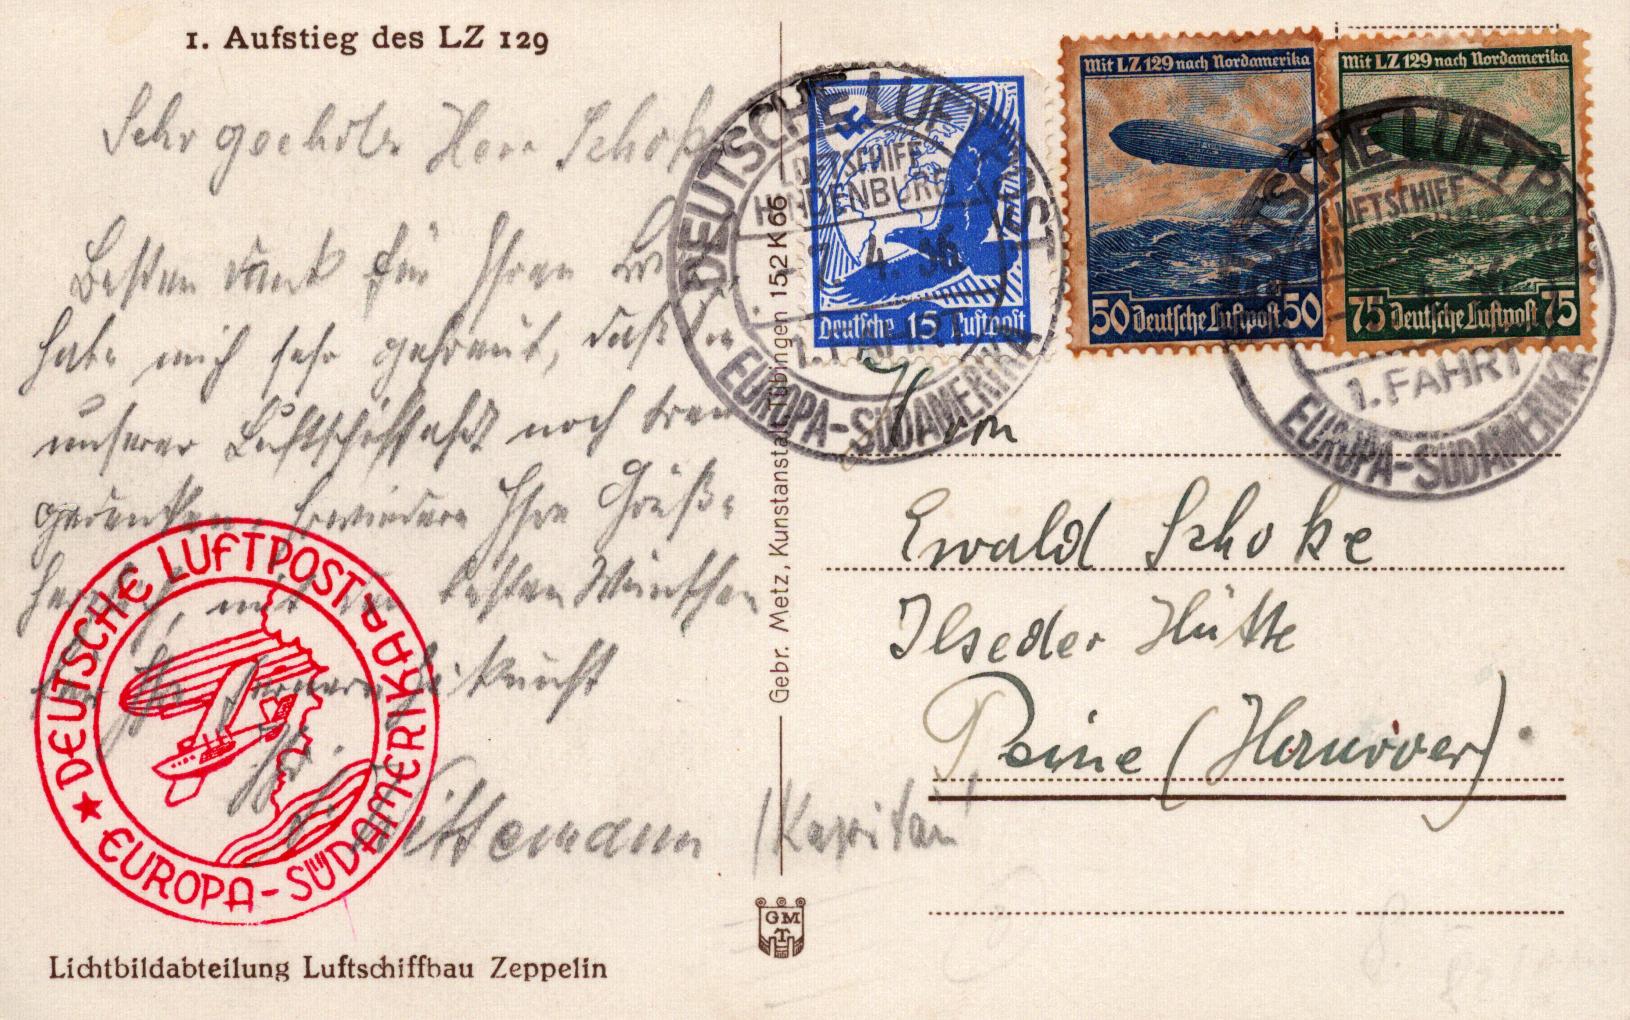 1. Aufstieg des LZ 129
Sehr geehrter Herr Schoke
Besten Dank für Ihren
habe mich sehr gefreut, daß Sie
unserer Luftschiffahrt noch treu
gedenken. Erwidere Ihre Grüße
herzlich, mit den besten Wünschen
für Ihr
Wittemann (Kapitän)
Lichtbildabteilung Luftschiffbau Zeppelin
DEUTSCHE LUFTPOST
EUROPA-SÜDAMERIKA
Gebr. Metz, Kunstanstalt, Tübingen 152 K 66
GMT
DEUTSCHE LUFTPOST
LUFTSCHIFF
HINDENBURG
4. 36
1. FAHRT
EUROPA-SÜDAMERIKA
Deutsche 15 Luftpost
Mit LZ 129 nach Nordamerika
50 Deutsche Luftpost 50
Mit LZ 129 nach Nordamerika
75 Deutsche Luftpost 75
DEUTSCHE LUFTPOST
LUFTSCHIFF
1. FAHRT
EUROPA-SÜDAMERIKA
Herrn
Ewald Schoke
Ilseder Hütte
Peine (Hannover)